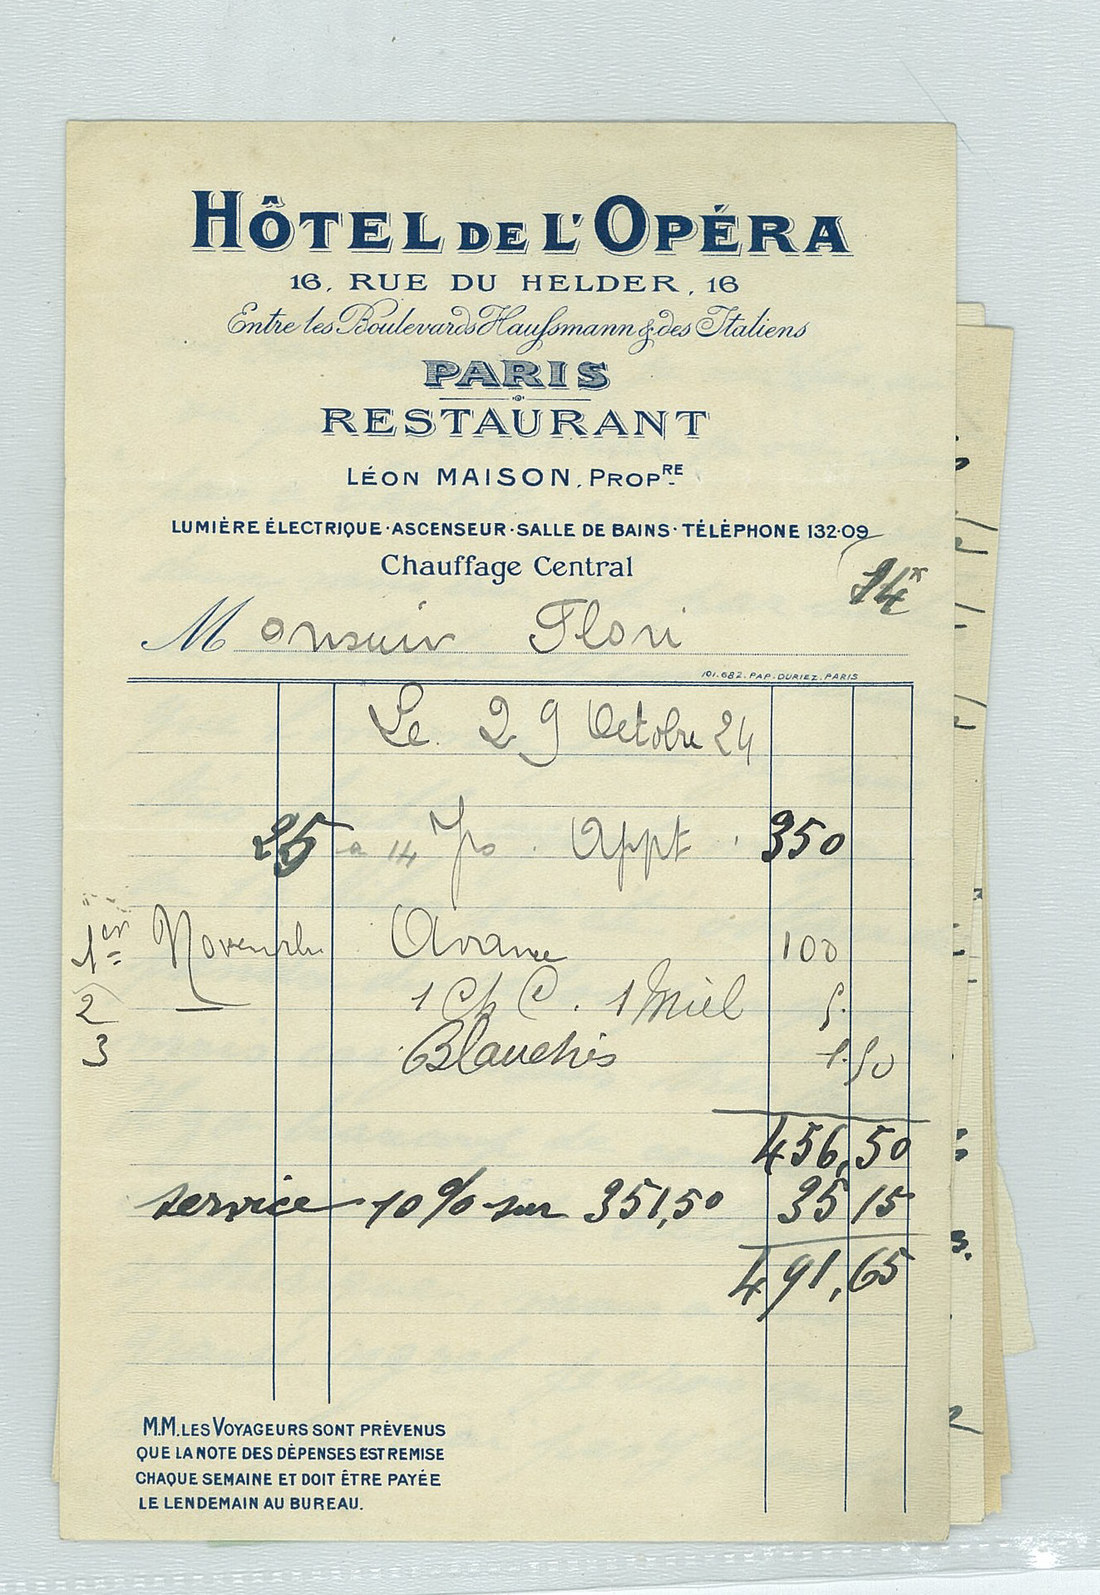 HÔTEL DE L'OPÉRA
16, RUE DU HELDER, 16
Entre les Boulevards Haussmann & des Italiens
PARIS
RESTAURANT
LÉON MAISON, PROPRE
LUMIÈRE ÉLECTRIQUE · ASCENSEUR · SALLE DE BAINS · TÉLÉPHONE 132-09
Chauffage Central
Monsieur Flori
101.682. PAP. DURIEZ. PARIS
Le 29 Octobre 24
25 à 14 Appt 350
1er Novembre Avance 100
2 — 1 Ch C. 1 Miel 5.
3 Blanches 1.50
456,50
service 10% sur 351,50 35 15
491,65
M.M. LES VOYAGEURS SONT PRÉVENUS
QUE LA NOTE DES DÉPENSES EST REMISE
CHAQUE SEMAINE ET DOIT ÊTRE PAYÉE
LE LENDEMAIN AU BUREAU.